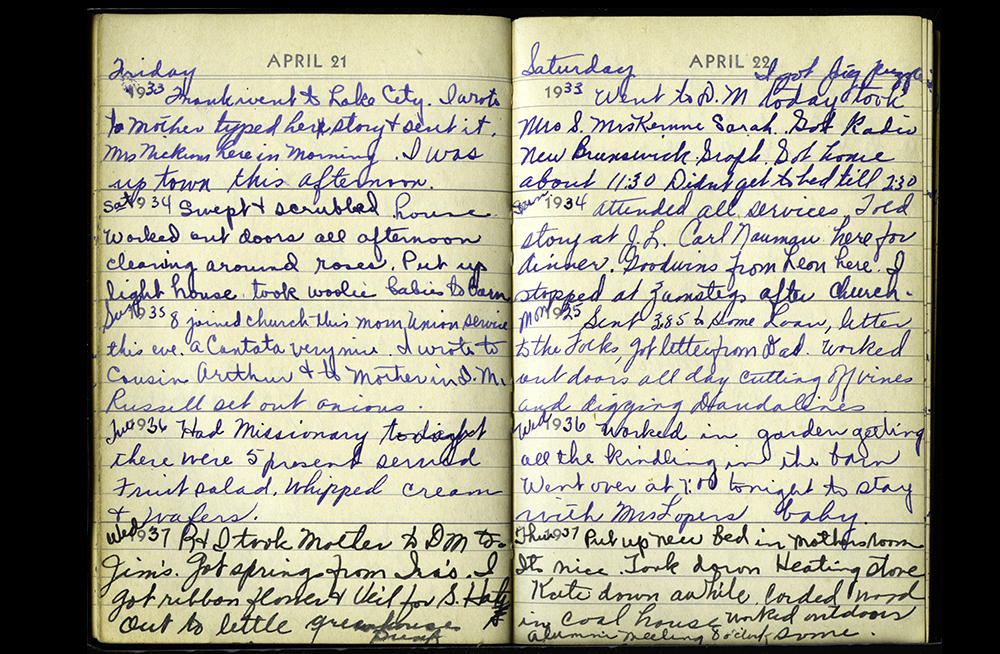 APRIL 21
Friday
1933 Frank went to Lake City. I wrote
to Mother typed her story & sent it.
Mrs here in Morning. I was
up town this afternoon.
Sat 1934 Swept & scrubbed house
Worked out doors all afternoon
cleaning around roses. Put up
light house. took woolie babies to barn
Sun 1935 8 joined church this morn, Union service
this eve. a Cantata very nice. I wrote to
Cousin Arthur & to Mother in D.M.
Russell set out onions.
Tue 1936 Had Missionary
there were 5 present served
Fruit salad, Whipped cream
& wafers.
Wed 1937 R & I took Mother to DM to
Jim's. Got springs from Ira's. I
got ribbon flower & Veil for S. Hat
Out to little greenhouse
APRIL 22
Saturday I got jig puzzle
1933 Went to D.M today took
Mrs S. Mrs Sarah. Got Radio
New Brunswick Graph. Got home
about 11:30 Didnt get to bed till 230
Sun 1934 attended all services, Told
story at J.L. Carl Nauman here for
dinner. Goodwins from Leon here. I
stopped at Zumstegs after church.
Mon 1935 Sent 3.85 to Loan, letter
to the Folks, got letter from Dad. Worked
out doors all day cutting off vines
and digging Dandalines
Wed 1936 Worked in garden getting
all the kindling in the barn
Went over at 7:00 tonight to stay
with Mrs Lopers baby.
Thu 1937 Put up new Bed in Mothers room
Its nice. Took down Heating stove
Kate down awhile, Corded wood
in Coal house worked outdoors
Alumni meeting 8 o'clock some.